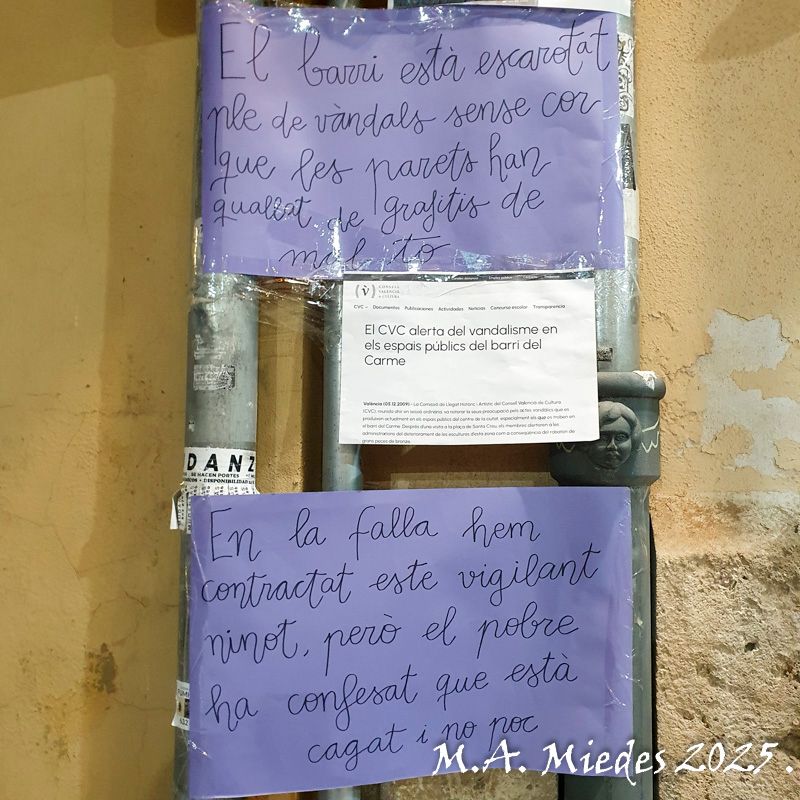 El barri està escarotat
ple de vàndals sense cor
que les parets han
quallat de grafitis de
mal to
CONSELL
VALENCIÀ
CULTURA
CVC Documentos Publicaciones Actividades Noticias Concurso escolar Transparencia
El CVC alerta del vandalisme en
els espais públics del barri del
Carme
València (03.12.2009) - La Comissió de Llegat Històric i Artístic del Consell Valencià de Cultura
(CVC), reunida ahir en sessió ordinària, va reiterar la seua preocupació pels actes vandàlics que es
produïxen actualment en els espais públics del centre de la ciutat, especialment els que es troben en
el barri del Carme. Després d'una visita a la plaça de Santa Creu, els membres alertaren a les
administracions del deteriorament de les escultures d'esta zona com a conseqüència del robatori de
grans peces de bronze.
DANZ
SE HACEN PORTES
DISPONIBILIDAD
En la falla hem
contractat este vigilant
ninot, però el pobre
ha confesat que està
cagat i no poc
M.A. Miedes 2025.